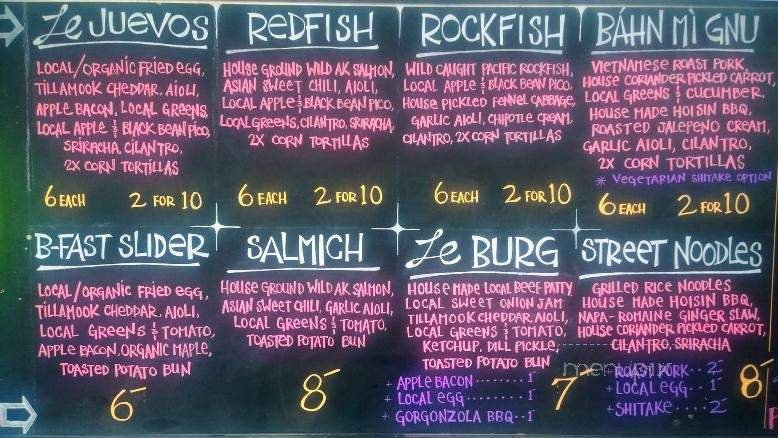 Le JUEVOS
LOCAL/ORGANIC FRIED EGG,
TILLAMOOK CHEDDAR, AIOLI,
APPLE BACON, LOCAL GREENS,
LOCAL APPLE & BLACK BEAN PICO,
SRIRACHA, CILANTRO,
2X CORN TORTILLAS
6 EACH 2 FOR 10
REDFISH
HOUSE GROUND WILD AK SALMON,
ASIAN SWEET CHILI, AIOLI,
LOCAL APPLE & BLACK BEAN PICO,
LOCAL GREENS, CILANTRO, SRIRACHA,
2X CORN TORTILLAS
6 EACH 2 FOR 10
ROCKFISH
WILD CAUGHT PACIFIC ROCKFISH,
LOCAL APPLE & BLACK BEAN PICO,
HOUSE PICKLED FENNEL CABBAGE,
GARLIC AIOLI, CHIPOTLE CREAM,
CILANTRO, 2X CORN TORTILLAS
6 EACH 2 FOR 10
BÁHN MÌ GNU
VIETNAMESE ROAST PORK,
HOUSE CORIANDER PICKLED CARROT,
LOCAL GREENS & CUCUMBER,
HOUSE MADE HOISIN BBQ,
ROASTED JALEPENO CREAM,
GARLIC AIOLI, CILANTRO,
2X CORN TORTILLAS
* VEGETARIAN SHITAKE OPTION
6 EACH 2 FOR 10
B-FAST SLIDER
LOCAL/ORGANIC FRIED EGG,
TILLAMOOK CHEDDAR, AIOLI,
LOCAL GREENS & TOMATO,
APPLE BACON, ORGANIC MAPLE,
TOASTED POTATO BUN
6-
SALMICH
HOUSE GROUND WILD AK SALMON,
ASIAN SWEET CHILI, GARLIC AIOLI,
LOCAL GREENS & TOMATO,
TOASTED POTATO BUN
8-
Le BURG
HOUSE MADE LOCAL BEEF PATTY
LOCAL SWEET ONION JAM
TILLAMOOK CHEDDAR, AIOLI,
LOCAL GREENS & TOMATO,
KETCHUP, DILL PICKLE,
TOASTED POTATO BUN
+ APPLE BACON ........ 1-
+ LOCAL EGG ........ 1-
+ GORGONZOLA BBQ .. 1-
7-
STREET NOODLES
GRILLED RICE NOODLES
HOUSE MADE HOISIN BBQ,
NAPA-ROMAINE GINGER SLAW,
HOUSE CORIANDER PICKLED CARROT,
CILANTRO, SRIRACHA
+ ROAST PORK ... 2-
+ LOCAL EGG ... 1-
+ SHITAKE .... 2-
8-